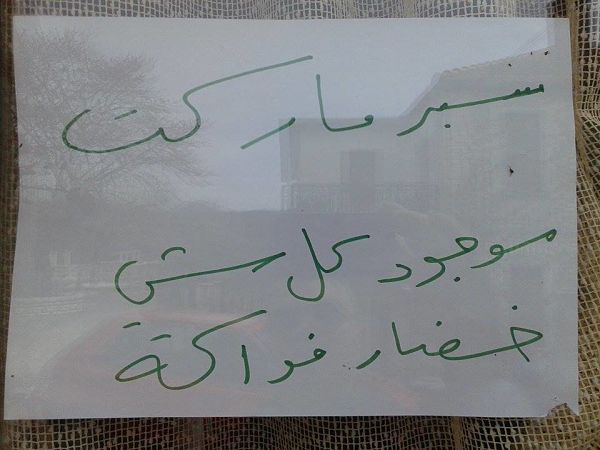 سبر ماركت
موجود كل شي
خضار فواكة